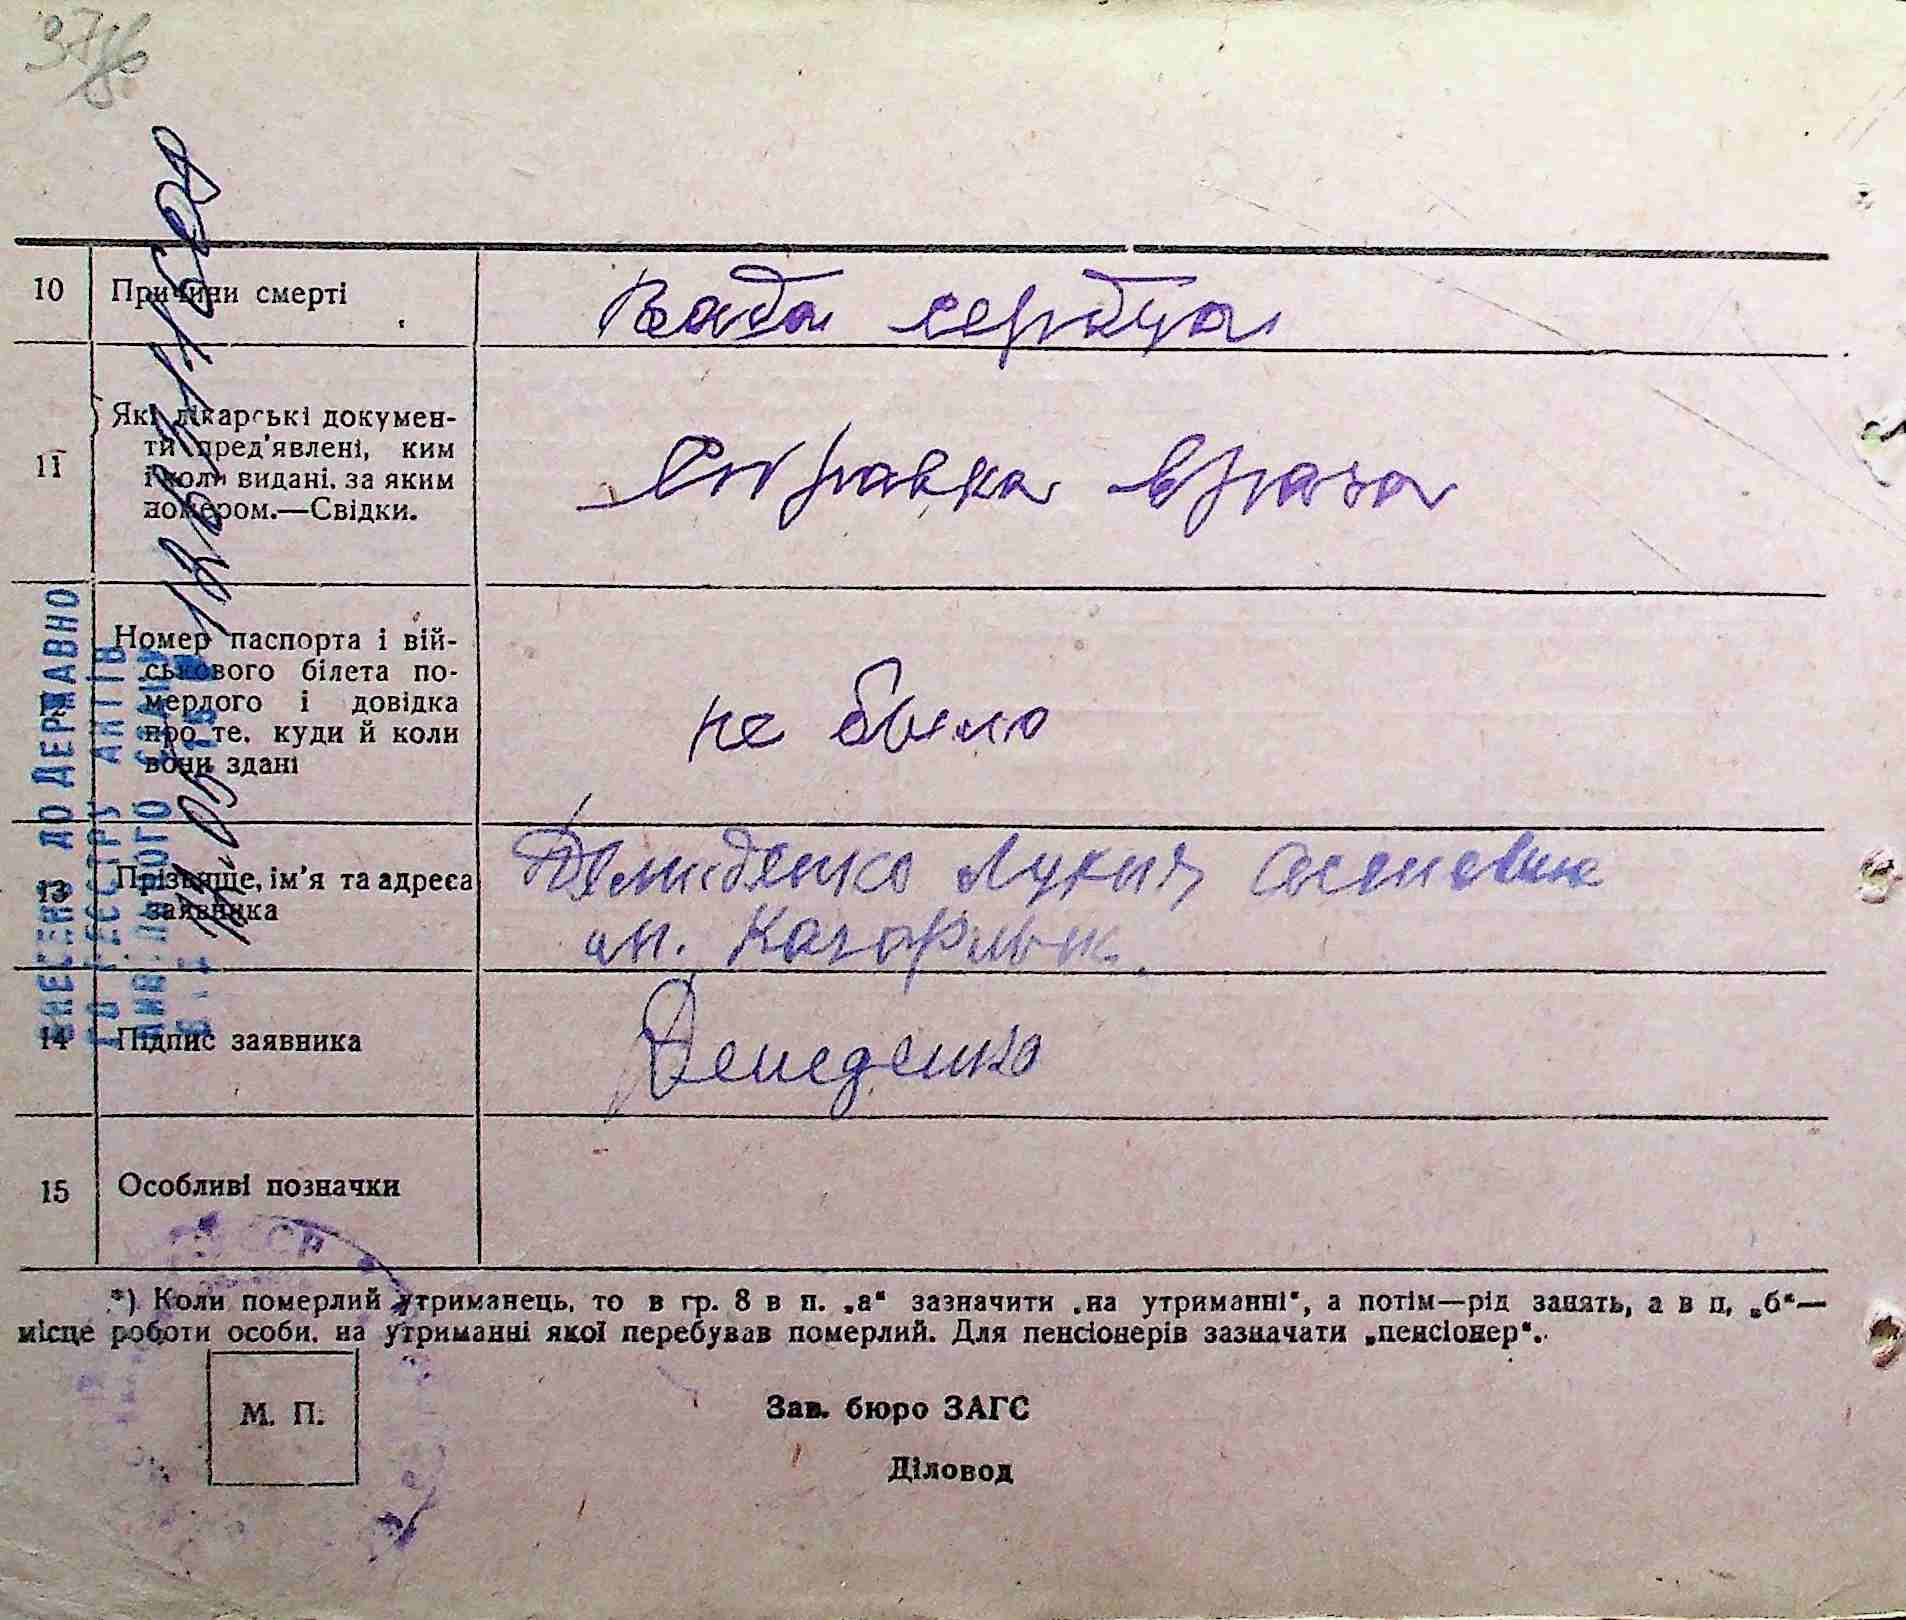 10 Причини смерті Вада сердца
11 Які лікарські документи пред'явлені, ким і коли видані, за яким номером.—Свідки. Справка врача
12 Номер паспорта і військового білета померлого і довідка про те, куди й коли вони здані не было
13 Прізвище, ім'я та адреса заявника Демиденко
м. Кагарлык.
14 Підпис заявника Демеденко
15 Особливі позначки
*) Коли померлий утриманець, то в гр. 8 в п. „а“ зазначити „на утриманні“, а потім—рід занять, а в п. „б“—
місце роботи особи, на утриманні якої перебував померлий. Для пенсіонерів зазначати „пенсіонер“.
М. П.
Зав. бюро ЗАГС
Діловод
ВНЕСЕНО ДО ДЕРЖАВНО
ГО РЕЄСТРУ АКТІВ
ЦИВІЛЬНОГО СТАНУ